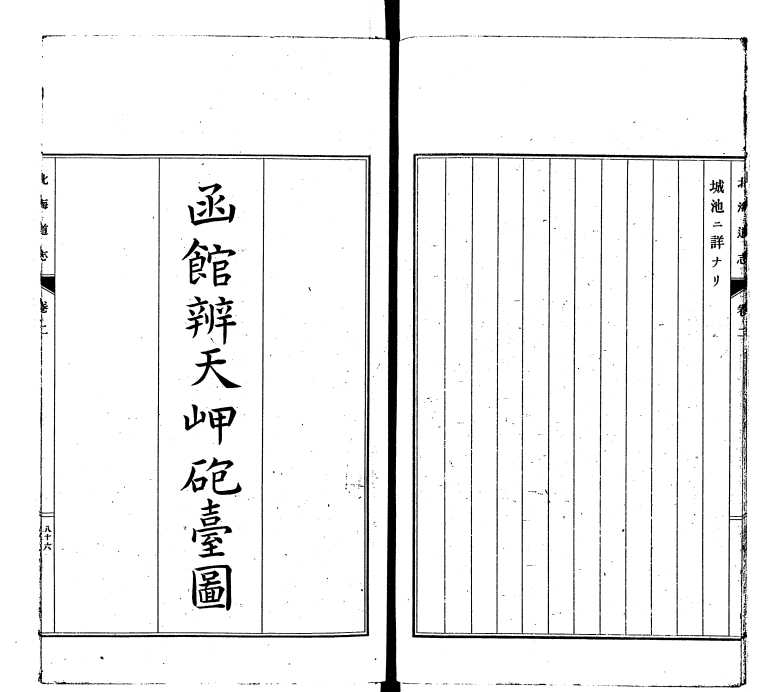 北海道志 卷二
城池ニ詳ナリ
函館辨天岬砲臺圖
北海道志 卷二
八十六